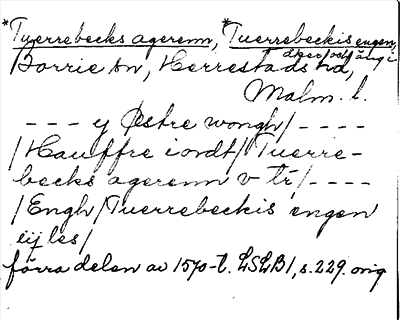 *Tyerrebecks agerenn, *Tuerrebeckis engen,
åker och äng i
Borrie sn, Herrestads hd,
Malm. l.
--- y Østre wongh/ ----
/Hauffre iordt/ Tuerre-
becks agerenn v tr̃/----
/Engh/ Tuerrebeckis engen
iij les/
förra delen av 1570-t. LSLB1, s. 229. orig